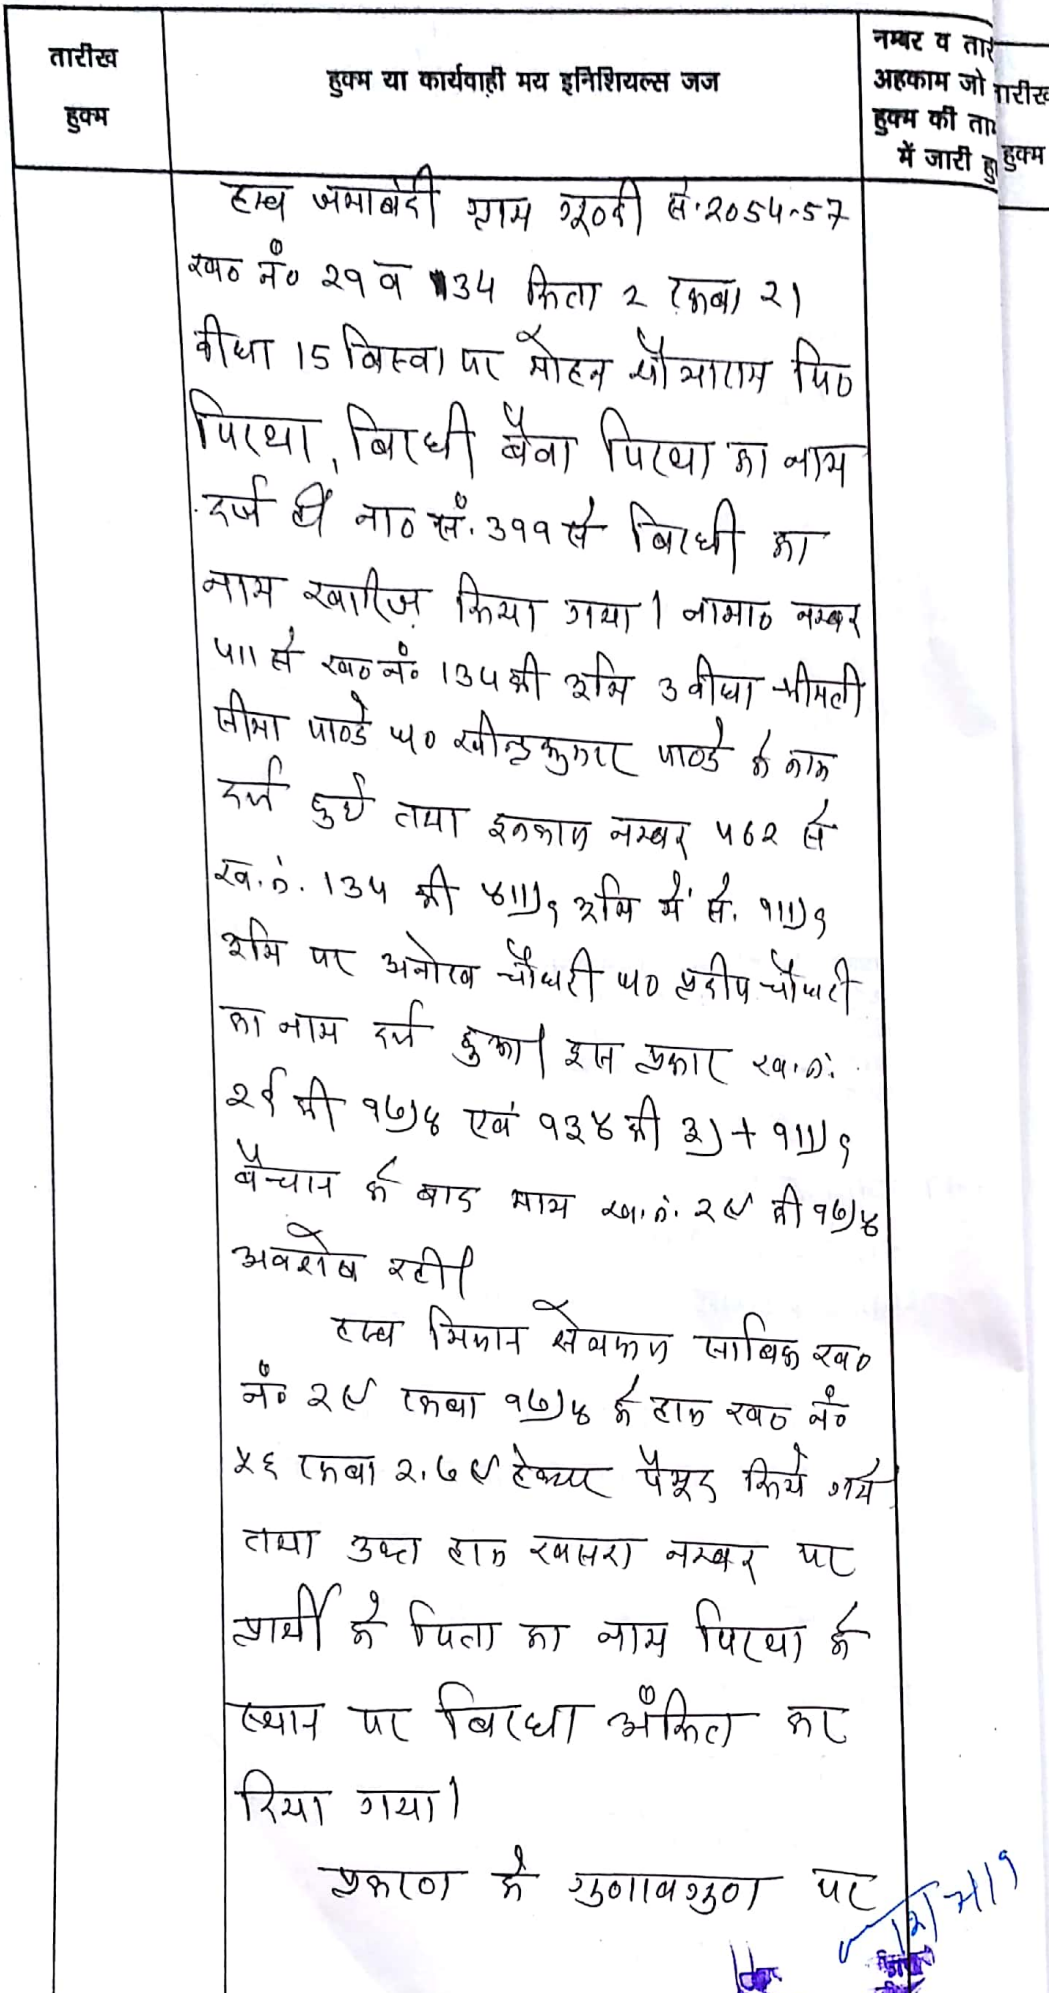 तारीख
हुक्म
हुक्म या कार्यवाही मय इनिशियल्स जज
नम्बर व तार
अहकाम जो
हुक्म की ता
में जारी हु
तारीख
हुक्म
हस्ब जमाबंदी ग्राम सं. 2054-57
ख० नं० 29 व 134 किता 2 रकबा 21
बीघा 15 बिस्वा पर मोहन पि०
पिरथा, बिरधी बेवा पिरथा का नाम
दर्ज थी ना० सं. 399 से बिरधी का
नाम खारिज किया गया। नामा० नम्बर
411 से ख० नं० 134 की भूमि 3 बीघा श्रीमती
सीमा पाण्डे प० रवीन्द्र कुमार पाण्डे के नाम
दर्ज हुई तथा इन्तकाल नम्बर 462 से
ख.नं. 134 की ४॥)१ भूमि में से १॥)१
भूमि पर चौधरी प० प्रदीप चौधरी
का नाम दर्ज हुआ। इस प्रकार ख.नं.
२९ की १७)४ एवं १३४ की ३) + १॥)१
बेचान के बाद मात्र ख.नं. २९ की १७)४
अवशेष रही।
हस्ब मिलान क्षेत्रफल साबिक ख०
नं० २९ रकबा १७)४ के हाल ख० नं०
५६ रकबा २.७९ हेक्टर किये गये
तथा उक्त हाल खसरा नम्बर पर
प्रार्थी के पिता का नाम पिरथा के
स्थान पर बिरधा अंकित कर
दिया गया।
प्रकरण के गुणावगुण पर